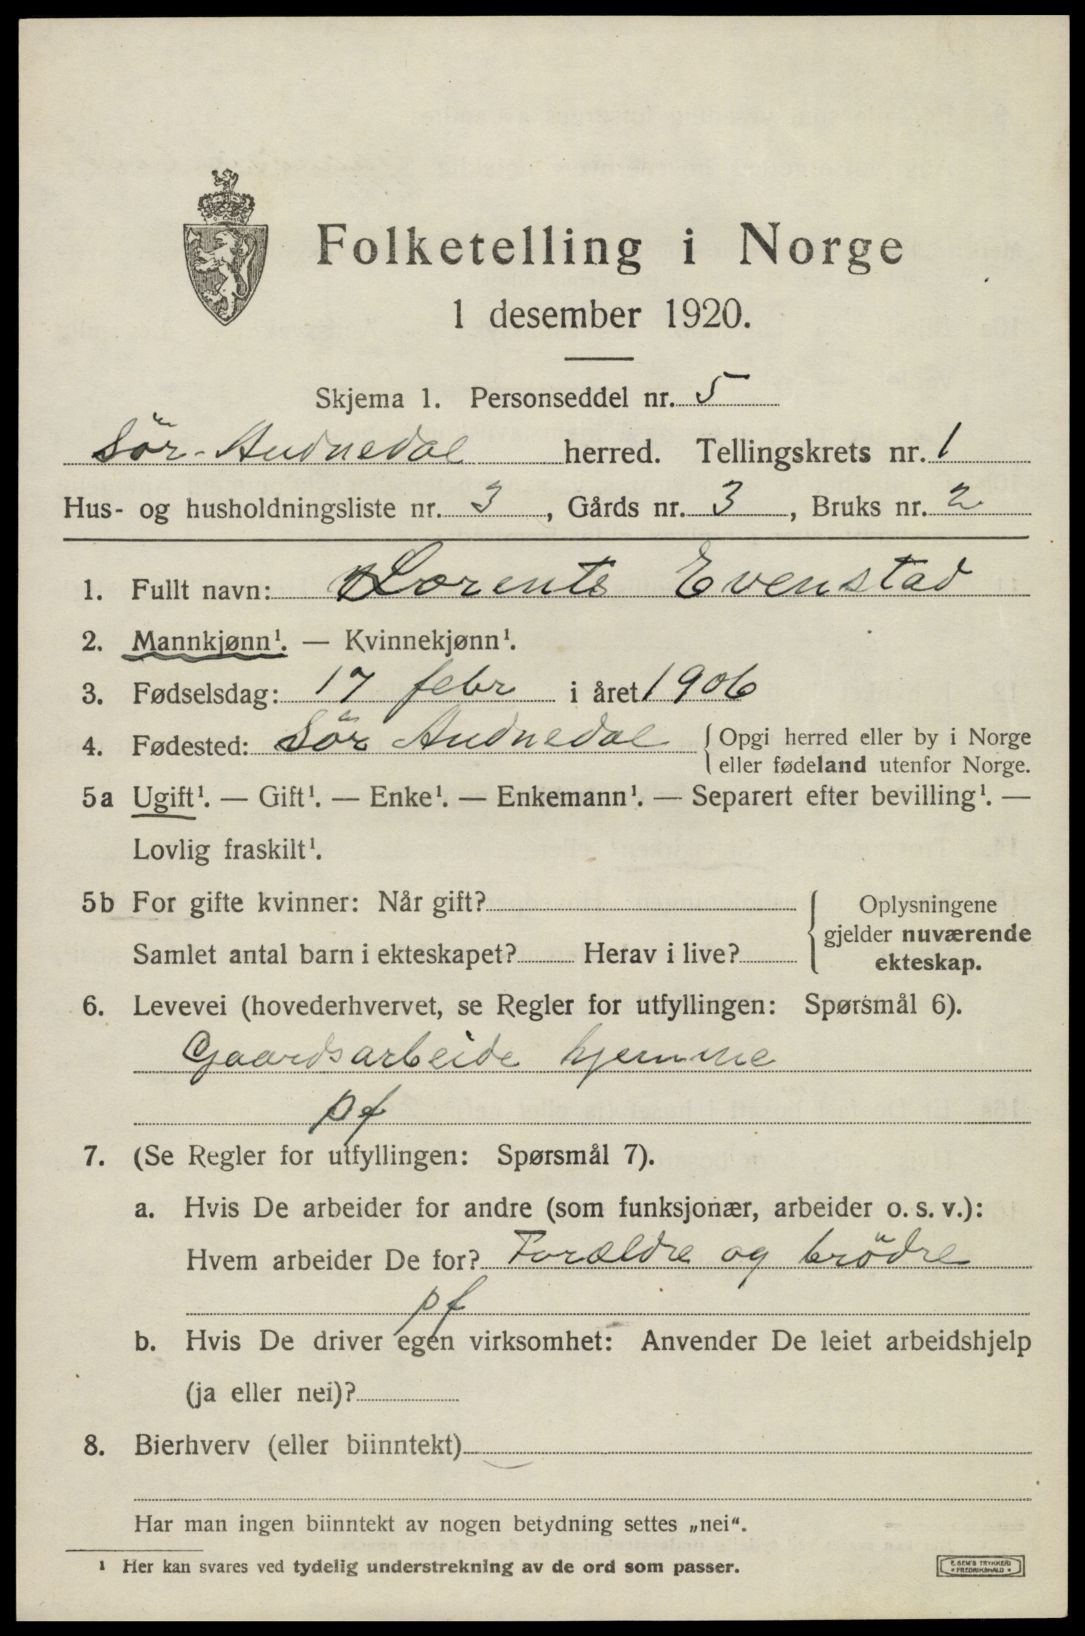 Folketelling i Norge
1 desember 1920.
Skjema 1. Personseddel nr. 5
Sör-Audnedal herred. Tellingskrets nr. 1
Hus- og husholdningsliste nr. 3, Gårds nr. 3, Bruks nr. 2
1. Fullt navn: Lorents Evenstad
2. Mannkjønn¹. — Kvinnekjønn¹.
3. Fødselsdag: 17 febr i året 1906
4. Fødested: Sör Audnedal {Opgi herred eller by i Norge
eller fødeland utenfor Norge.
5a Ugift¹. — Gift¹. — Enke¹. — Enkemann¹. — Separert efter bevilling¹. —
Lovlig fraskilt¹.
5b For gifte kvinner: Når gift?
Samlet antal barn i ekteskapet? Herav i live?
{Oplysningene
gjelder nuværende
ekteskap.
6. Levevei (hovederhvervet, se Regler for utfyllingen: Spørsmål 6).
Gaardsarbeide hjemme
pf
7. (Se Regler for utfyllingen: Spørsmål 7).
a. Hvis De arbeider for andre (som funksjonær, arbeider o. s. v.):
Hvem arbeider De for? Forældre og brödre
pf
b. Hvis De driver egen virksomhet: Anvender De leiet arbeidshjelp
(ja eller nei)?
8. Bierhverv (eller biinntekt)
Har man ingen biinntekt av nogen betydning settes „nei“.
¹ Her kan svares ved tydelig understrekning av de ord som passer.
E. SEM'S TRYKKERI
• FREDRIKSHALD •